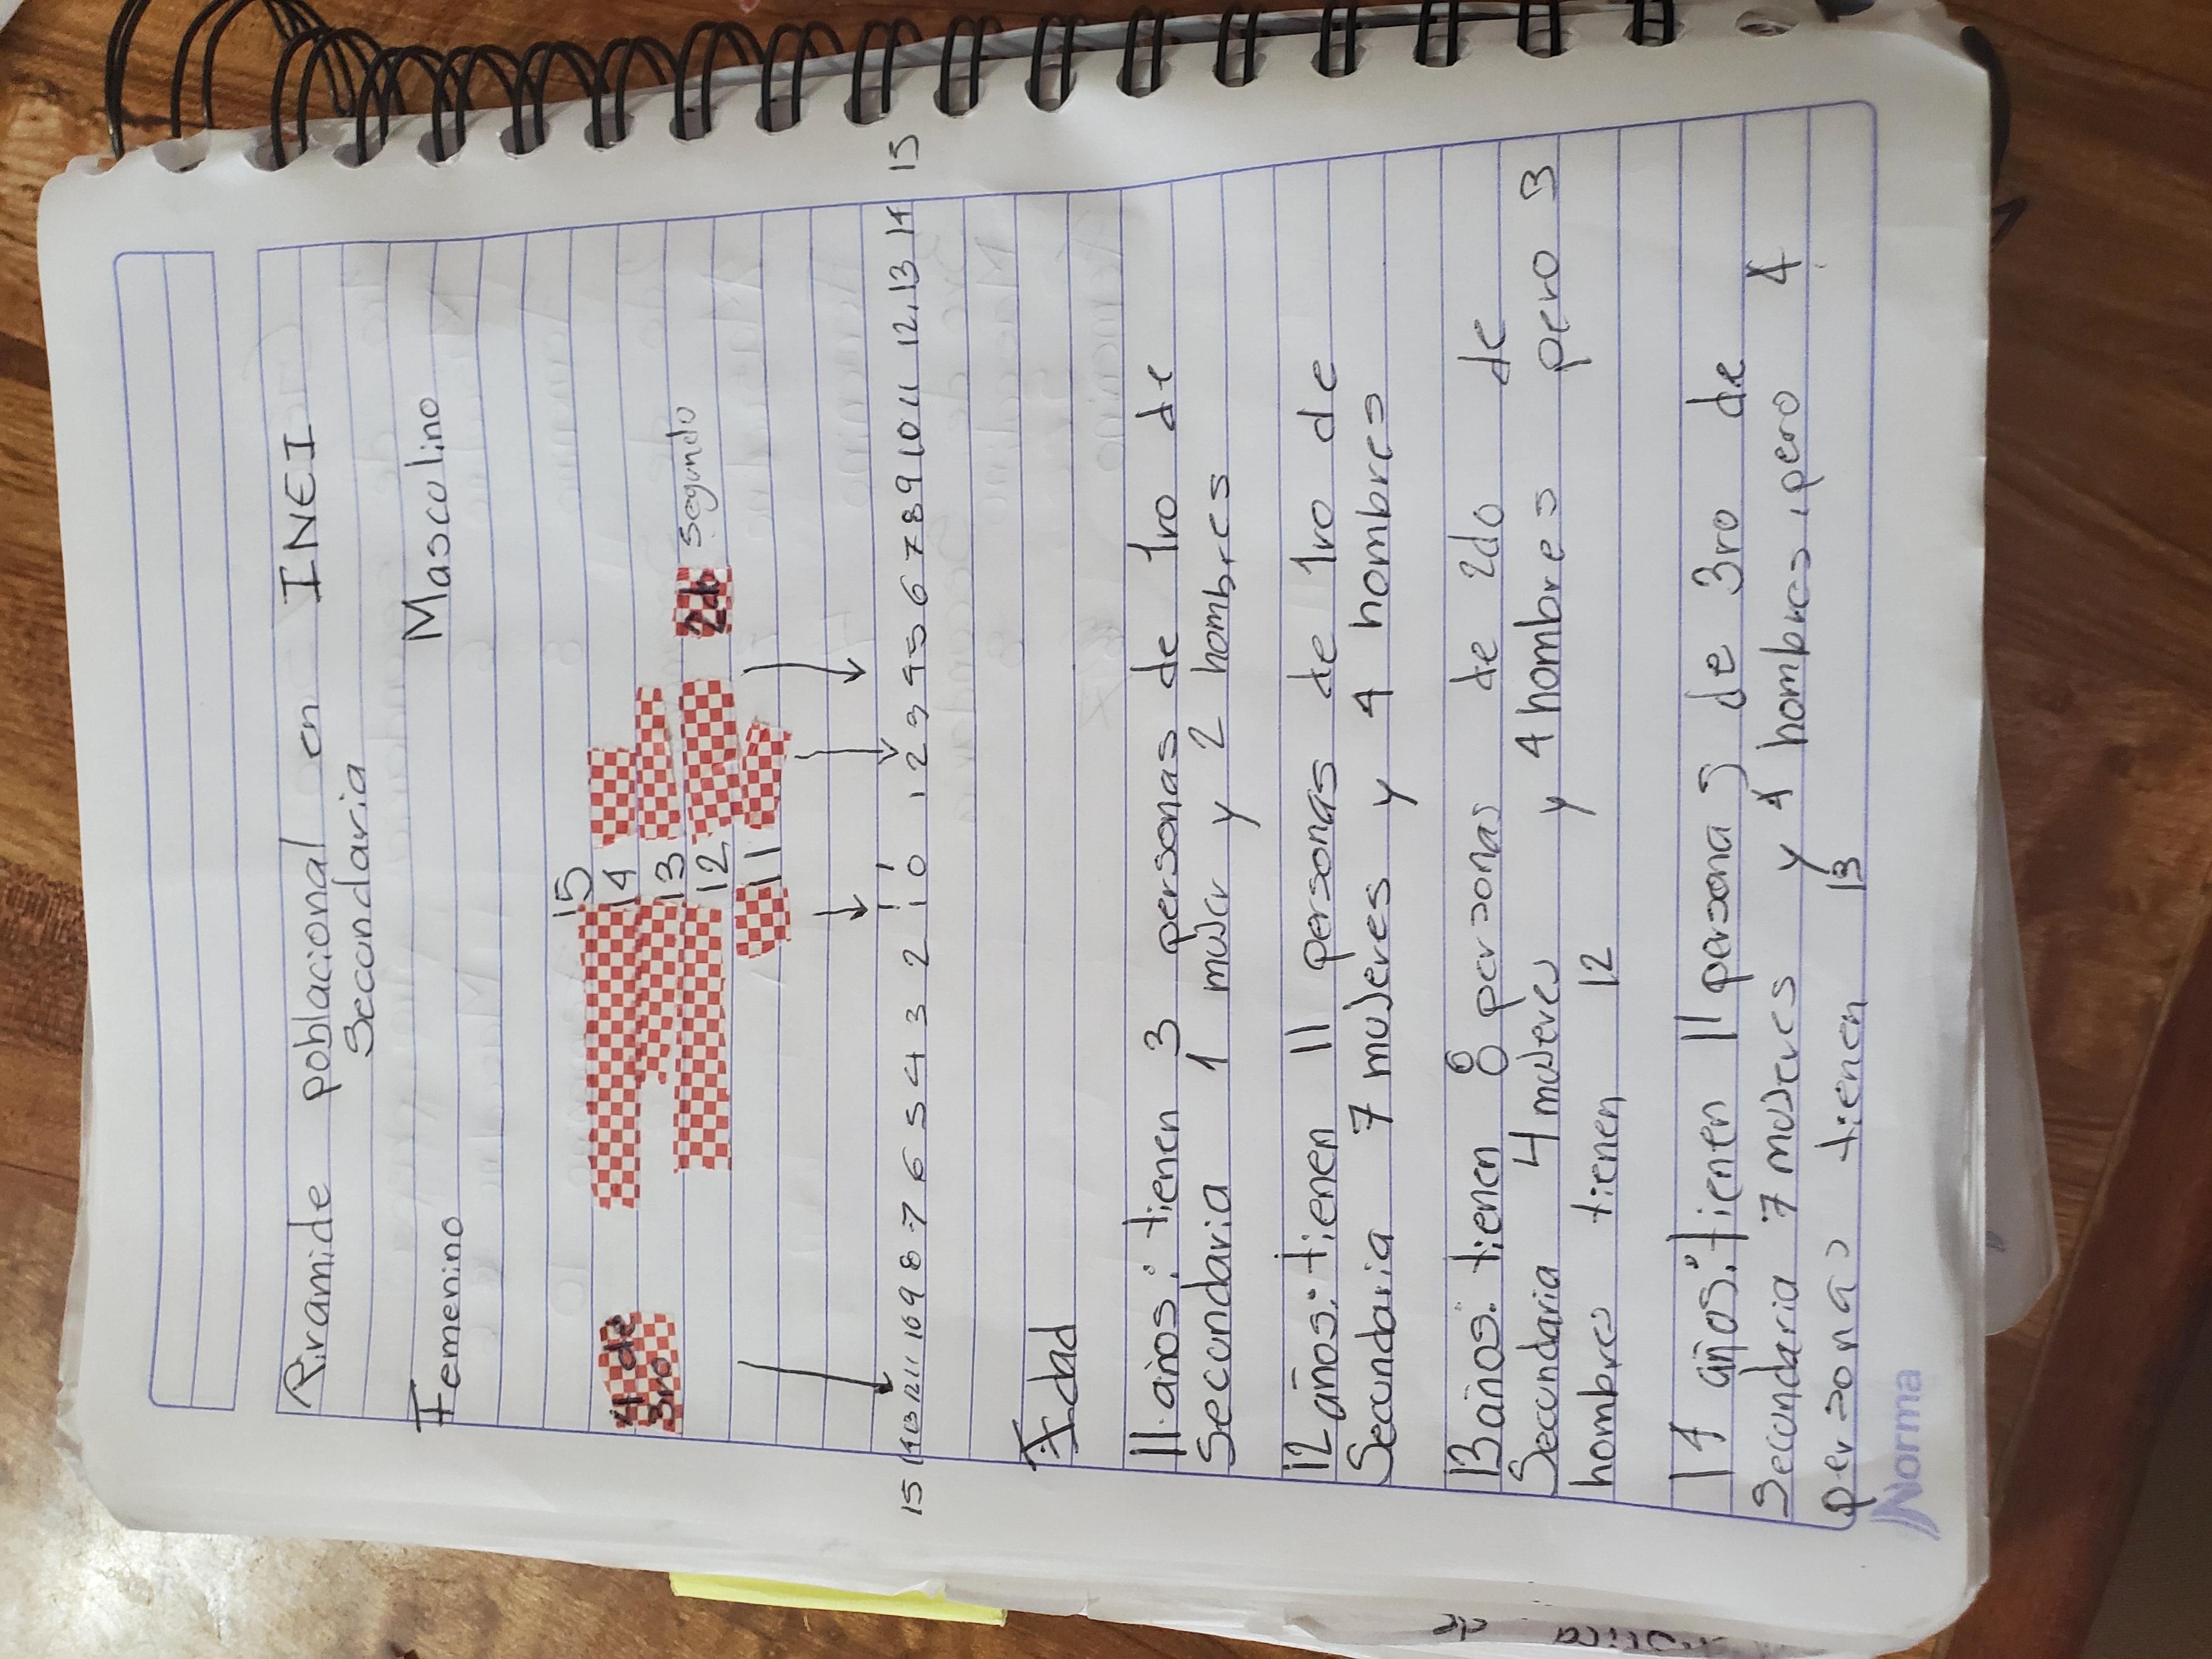 Piramide poblacional en INEI
Secundaria
Femenino Masculino
15
14
13
12
11
4 de
3ro
2do segundo
15 14 13 12 11 10 9 8 7 6 5 4 3 2 1 0 1 2 3 4 5 6 7 8 9 10 11 12 13 14 15
Edad
11 años: tienen 3 personas de 1ro de
Secundaria 1 mujer y 2 hombres
12 años: tienen 11 personas de 1ro de
Secundaria 7 mujeres y 4 hombres
13 años: tienen 8 personas de 2do de
Secundaria 4 mujeres y 4 hombres pero 3
hombres tienen 12
14 años: tienen 11 personas de 3ro de
Secundaria 7 mujeres y 4 hombres, pero 4
personas tienen 13
Norma
de